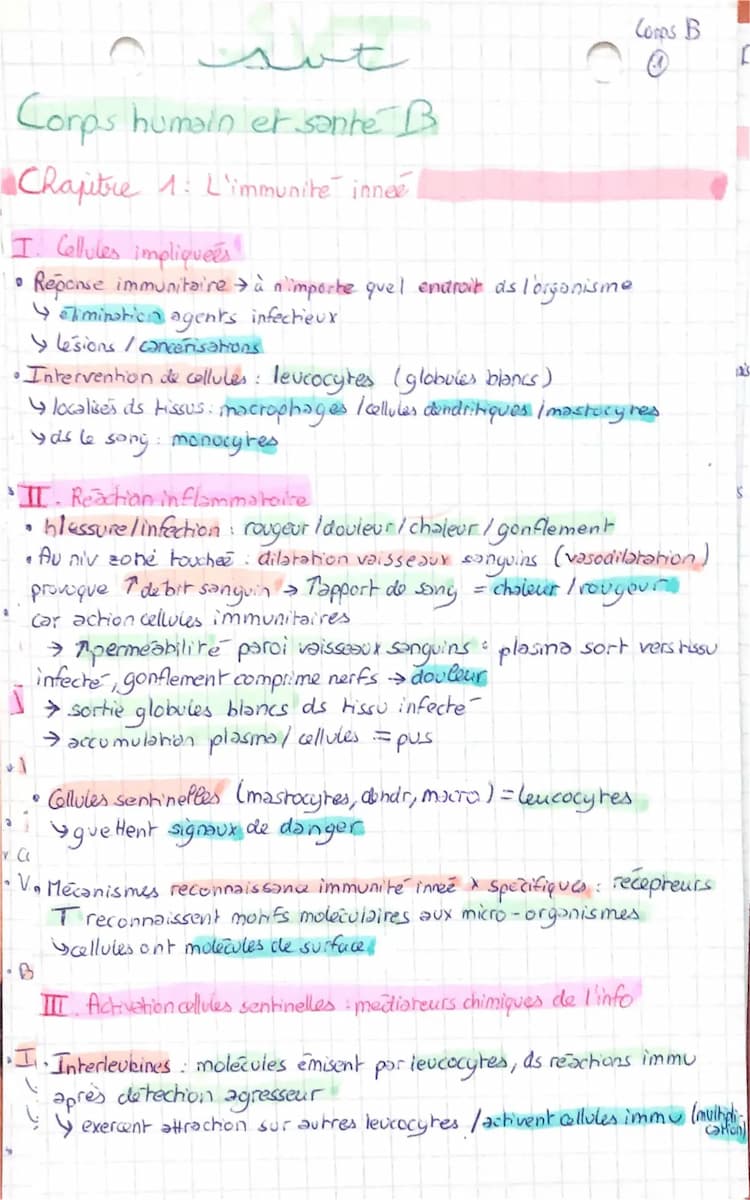 Corps B
①
svt
Corps humain et santé B
Chapitre 1 : L'immunité innée
I. Cellules impliquées
• Réponse immunitaire → à n'importe quel endroit ds l'organisme
↳ élimination agents infectieux
↳ lésions / cancérisations
• Intervention de cellules : leucocytes (globules blancs)
↳ localisés ds tissus : macrophages / cellules dendritiques / mastocytes
↳ ds le sang : monocytes
II. Réaction inflammatoire
• blessure/infection : rougeur/douleur/chaleur/gonflement
• Au niv zone touchée : dilatation vaisseaux sanguins (vasodilatation)
provoque ↑ débit sanguin → ↑apport de sang = chaleur / rougeur
car action cellules immunitaires
→ ↑perméabilité paroi vaisseaux sanguins : plasma sort vers tissu
infecté, gonflement comprime nerfs → douleur
→ sortie globules blancs ds tissu infecté
→ accumulation plasma/ cellules = pus
• Cellules sentinelles (mastocytes, dendr, macro) = leucocytes
↳ guettent signaux de danger
• Mécanismes reconnaissance immunité innée x spécifiques : récepteurs
T reconnaissent motifs moléculaires aux micro-organismes
↳ cellules ont molécules de surface
III. Activation cellules sentinelles : médiateurs chimiques de l'info
• Interleukines : molécules émisent par leucocytes, ds réactions immu
après détection agresseur
↳ exercent attraction sur autres leucocytes / activent cellules immu (multipli-
cation)